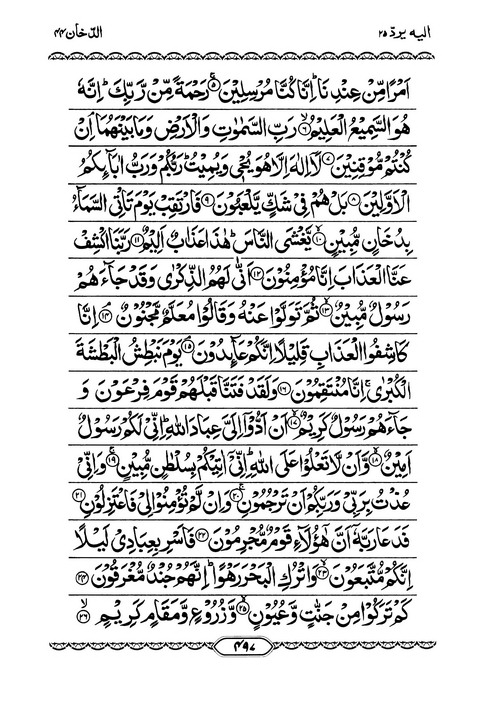 الیه یرد ۲۵ الدخان ۴۴
اَمْرًا مِّنْ عِنْدِنَا ؕ اِنَّا كُنَّا مُرْسِلِیْنَ ۵ رَحْمَةً مِّنْ رَّبِّكَ ؕ اِنَّهٗ
هُوَ السَّمِیْعُ الْعَلِیْمُ ۶ رَبِّ السَّمٰوٰتِ وَالْاَرْضِ وَمَا بَیْنَهُمَا ۘ اِنْ
كُنْتُمْ مُّوْقِنِیْنَ ۷ لَاۤ اِلٰهَ اِلَّا هُوَ یُحْیٖ وَیُمِیْتُ ؕ رَبُّكُمْ وَرَبُّ اٰبَآئِكُمُ
الْاَوَّلِیْنَ ۸ بَلْ هُمْ فِیْ شَكٍّ یَّلْعَبُوْنَ ۹ فَارْتَقِبْ یَوْمَ تَاْتِی السَّمَآءُ
بِدُخَانٍ مُّبِیْنٍ ۱۰ یَّغْشَی النَّاسَ ؕ هٰذَا عَذَابٌ اَلِیْمٌ ۱۱ رَبَّنَا اكْشِفْ
عَنَّا الْعَذَابَ اِنَّا مُؤْمِنُوْنَ ۱۲ اَنّٰی لَهُمُ الذِّكْرٰی وَقَدْ جَآءَهُمْ
رَسُوْلٌ مُّبِیْنٌ ۱۳ ثُمَّ تَوَلَّوْا عَنْهُ وَقَالُوْا مُعَلَّمٌ مَّجْنُوْنٌ ۱۴ اِنَّا
كَاشِفُوا الْعَذَابِ قَلِیْلًا اِنَّكُمْ عَآئِدُوْنَ ۱۵ یَوْمَ نَبْطِشُ الْبَطْشَةَ
الْكُبْرٰی ۚ اِنَّا مُنْتَقِمُوْنَ ۱۶ وَلَقَدْ فَتَنَّا قَبْلَهُمْ قَوْمَ فِرْعَوْنَ وَ
جَآءَهُمْ رَسُوْلٌ كَرِیْمٌ ۱۷ اَنْ اَدُّوْۤا اِلَیَّ عِبَادَ اللّٰهِ ؕ اِنِّیْ لَكُمْ رَسُوْلٌ
اَمِیْنٌ ۱۸ وَّاَنْ لَّا تَعْلُوْا عَلَی اللّٰهِ ۚ اِنِّیْۤ اٰتِیْكُمْ بِسُلْطٰنٍ مُّبِیْنٍ ۱۹ وَاِنِّیْ
عُذْتُ بِرَبِّیْ وَرَبِّكُمْ اَنْ تَرْجُمُوْنِ ۲۰ وَاِنْ لَّمْ تُؤْمِنُوْا لِیْ فَاعْتَزِلُوْنِ ۲۱
فَدَعَا رَبَّهٗۤ اَنَّ هٰۤؤُلَآءِ قَوْمٌ مُّجْرِمُوْنَ ۲۲ فَاَسْرِ بِعِبَادِیْ لَیْلًا
اِنَّكُمْ مُّتَّبَعُوْنَ ۲۳ وَاتْرُكِ الْبَحْرَ رَهْوًا ؕ اِنَّهُمْ جُنْدٌ مُّغْرَقُوْنَ ۲۴
كَمْ تَرَكُوْا مِنْ جَنّٰتٍ وَّعُیُوْنٍ ۲۵ وَّزُرُوْعٍ وَّمَقَامٍ كَرِیْمٍ ۲۶
۴۹۷